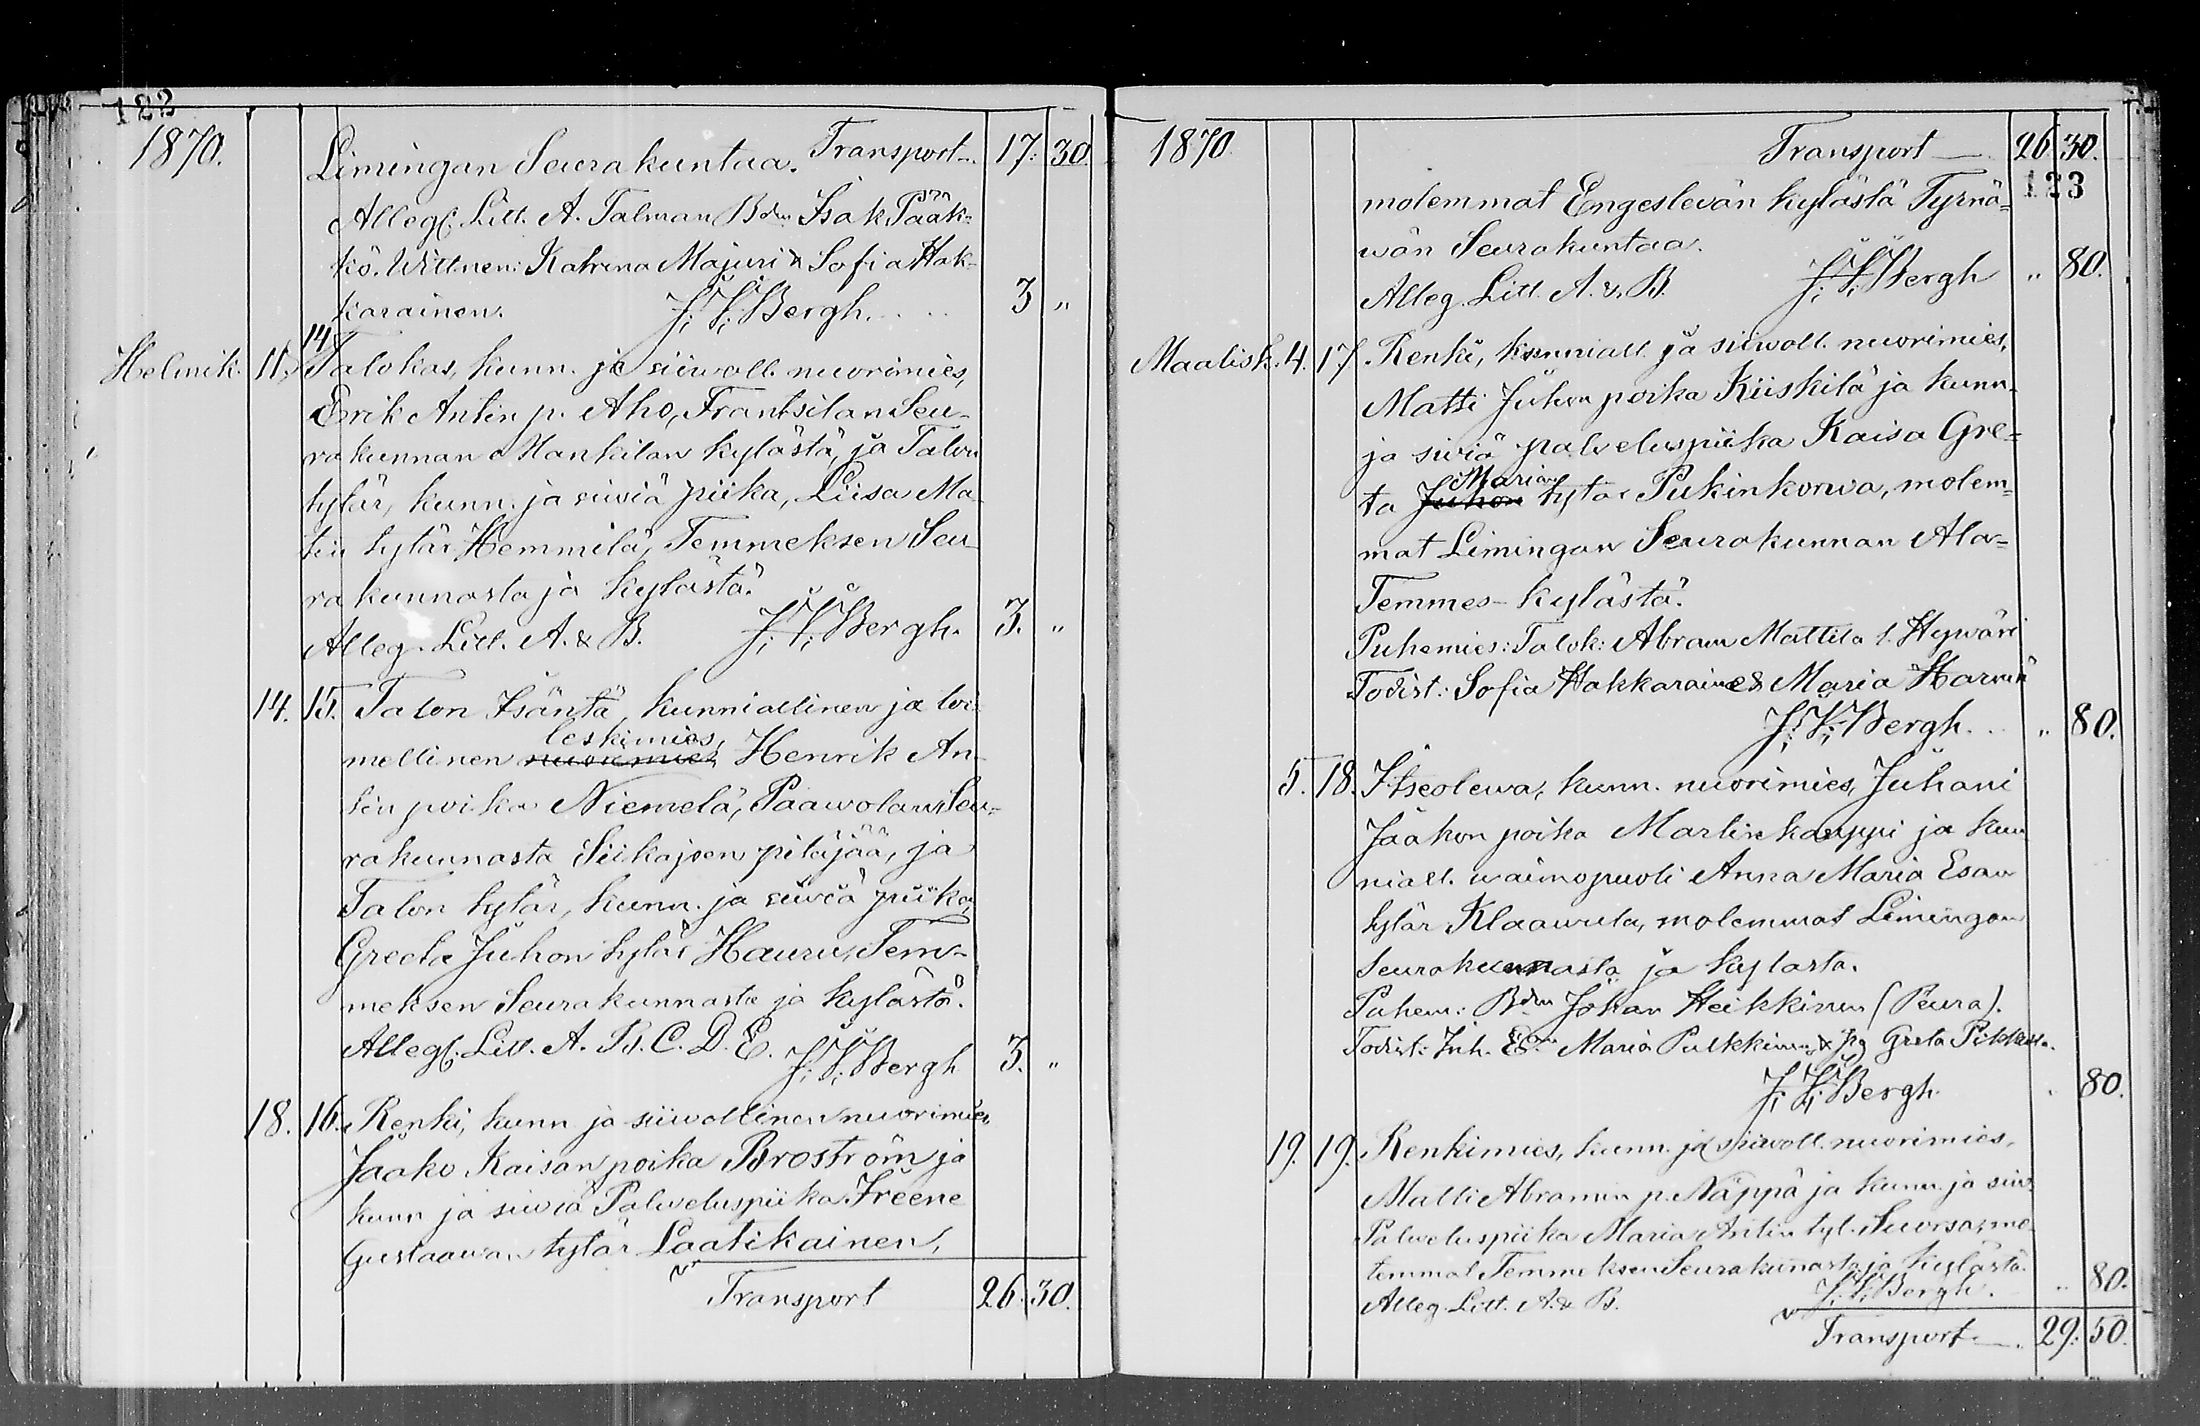 122
1870. Limingan Seurakuntaa. Transport 17: 30.
Alleg. Litt. A. Talman Bdn Isak Pääk-
kö. Wittnen: Katrina Majuri & Sofia Hak-
karainen. J. V. Bergh. 3 "
Helmik. 11. 14 Talokas, kunn. ja siiwoll. nuorimies,
Erik Antin p. Aho, Frantsilan Seu-
rakunnan Mankilan kylästä, ja Talon
tytär, kunn. ja siwiä piika, Liisa Ma-
tin tytär Hemmilä, Temmeksen Seu-
rakunnasta ja kylästä.
Alleg. Litt. A. & B. J. V. Bergh. 3. "
14. 15. Talon Isäntä, kunniallinen ja toi-
leskimies,
mellinen nuorimies, Henrik An-
tin poika Niemelä, Paawolan Seu-
rakunnasta Siikajoen pitäjää, ja
Talon tytär, kunn. ja siiwiä piika,
Greeta Juhon tytär Hauru, Tem-
meksen Seurakunnasta ja kylästä.
Alleg. Litt. A. B. C. D. E. J. V. Bergh 3. "
18. 16. Renki, kunn ja siiwollinen nuorimies,
Jaako Kaisan poika Broström ja
kunn ja siwiä Palweluspiika Ireene
Gustaawan tytär Laatikainen,
Transport 26. 30.
1870 Transport 26. 30.
123
molemmat Engeslevän kylästä Tyrnä-
wän Seurakuntaa.
Alleg. Litt. A. & B. J. V. Bergh " 80.
Maalisk. 4. 17. Renki, kunniall. ja siiwoll. nuorimies,
Matti Juhon poika Kiiskilä ja kunn.
ja siwiä palveluspiika Kaisa Gre-
Marian
ta Juhon tytär Pukinkorwa, molem-
mat Limingan Seurakunnan Ala-
Temmes-kylästä.
Puhemies: Talok: Abram Mattila l. Hywäri
Todist: Sofia Hakkaraine & Maria
J. V. Bergh. " 80.
5. 18. Itseolewa, kunn. nuorimies, Juhani
Jaakon poika Martinkauppi ja kun
niall. waimopuoli Anna Maria Esan
tytär Klaawula, molemmat Limingan
Seurakunnasta ja kylästa.
Puhem: Bdn Johan Heikkinen (Peura).
Todist: Inh. Maria Pulkkinen & Greta
J. V. Bergh. 80.
19. 19. Renkimies, kunn. ja siiwoll. nuorimies,
Matti Abramin p. Näppä ja kunn. ja siw.
Palweluspiika Maria Antin tyt. Suorsa, mo-
lemmat Temmeksen Seurakunnasta ja kylästä.
Alleg. Litt. A. & B. J. V. Bergh. " 80.
Transport 29: 50.